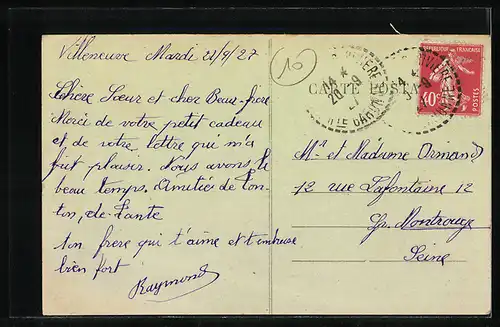 Villeneuve Mardi 21/9/27
10
Chère Sœur et cher Beau-frère
Merci de votre petit cadeau
et de votre lettre qui m'a
fait plaisir. Nous avons le
beau temps. Amitiés de Ton-
ton, de Tante
ton frere qui t'aime et t'embrasse
bien fort
Raymond
CARTE POSTALE
RÉPUBLIQUE FRANÇAISE
40c
POSTES
14 *
20 -9
27
Mr et Madame Ormand
12 rue Lafontaine 12
Gr. Montrouge
Seine